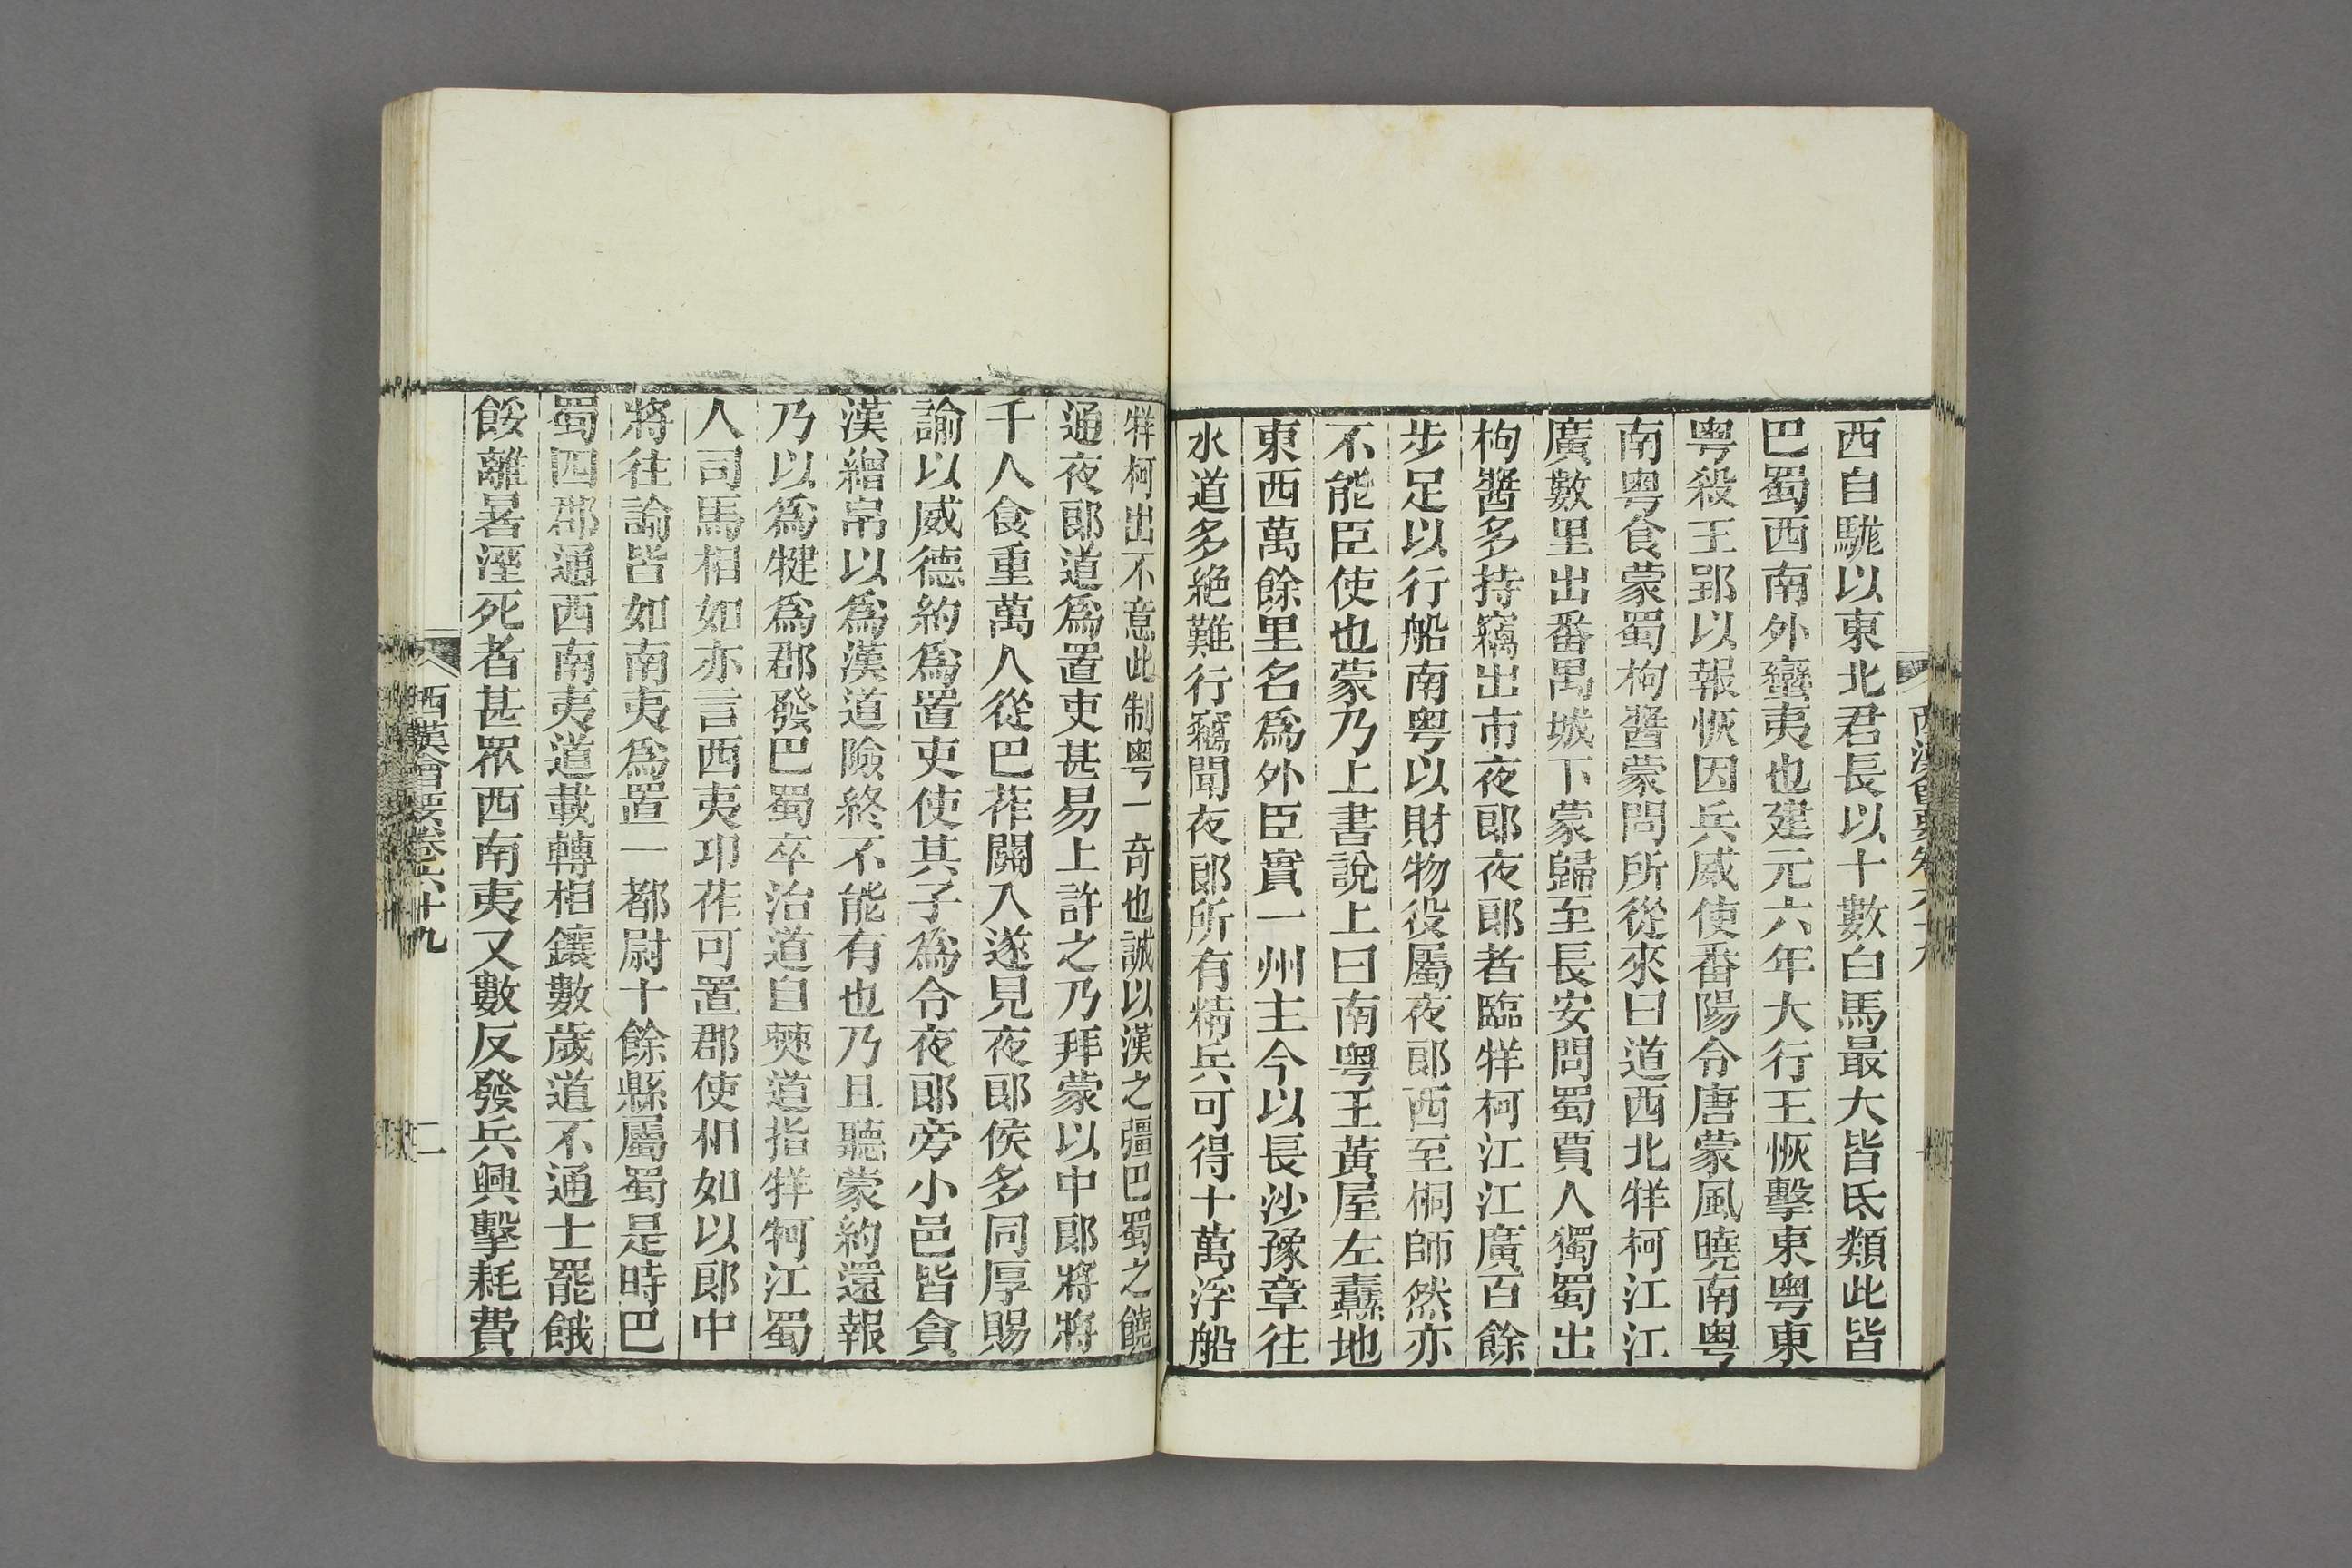 西自駹以東北君長以十數白馬最大皆氐類此皆
巴蜀西南外蠻夷也建元六年大行王恢擊東粤東
粤殺王郢以報恢因兵威使番陽令唐蒙風曉南粤
南粤食蒙蜀枸醬蒙問所從來曰道西北牂柯江江
廣數里出番禺城下蒙歸至長安問蜀賈人獨蜀出
枸醬多持竊出市夜郎夜郎者臨牂柯江江廣百餘
步足以行船南粤以財物役屬夜郎西至桐師然亦
不能臣使也蒙乃上書說上曰南粤王黃屋左纛地
東西萬餘里名爲外臣實一州主今以長沙豫章往
水道多絶難行竊聞夜郎所有精兵可得十萬浮船
牂柯出不意此制粤一奇也誠以漢之彊巴蜀之饒
通夜郎道爲置吏甚易上許之乃拜蒙以中郎將將
千人食重萬人從巴莋關入遂見夜郎侯多同厚賜
諭以威德約爲置吏使其子爲令夜郎旁小邑皆貪
漢繒帛以爲漢道險終不能有也乃且聽蒙約還報
乃以爲犍爲郡發巴蜀卒治道自僰道指牂牁江蜀
人司馬相如亦言西夷卭莋可置郡使相如以郎中
將往諭皆如南夷爲置一都尉十餘縣屬蜀是時巴
蜀四郡通西南夷道載轉相饟數歲道不通士罷餓
餒離暑溼死者甚眾西南夷又數反發兵興擊耗費
西漢會要卷六十九
二